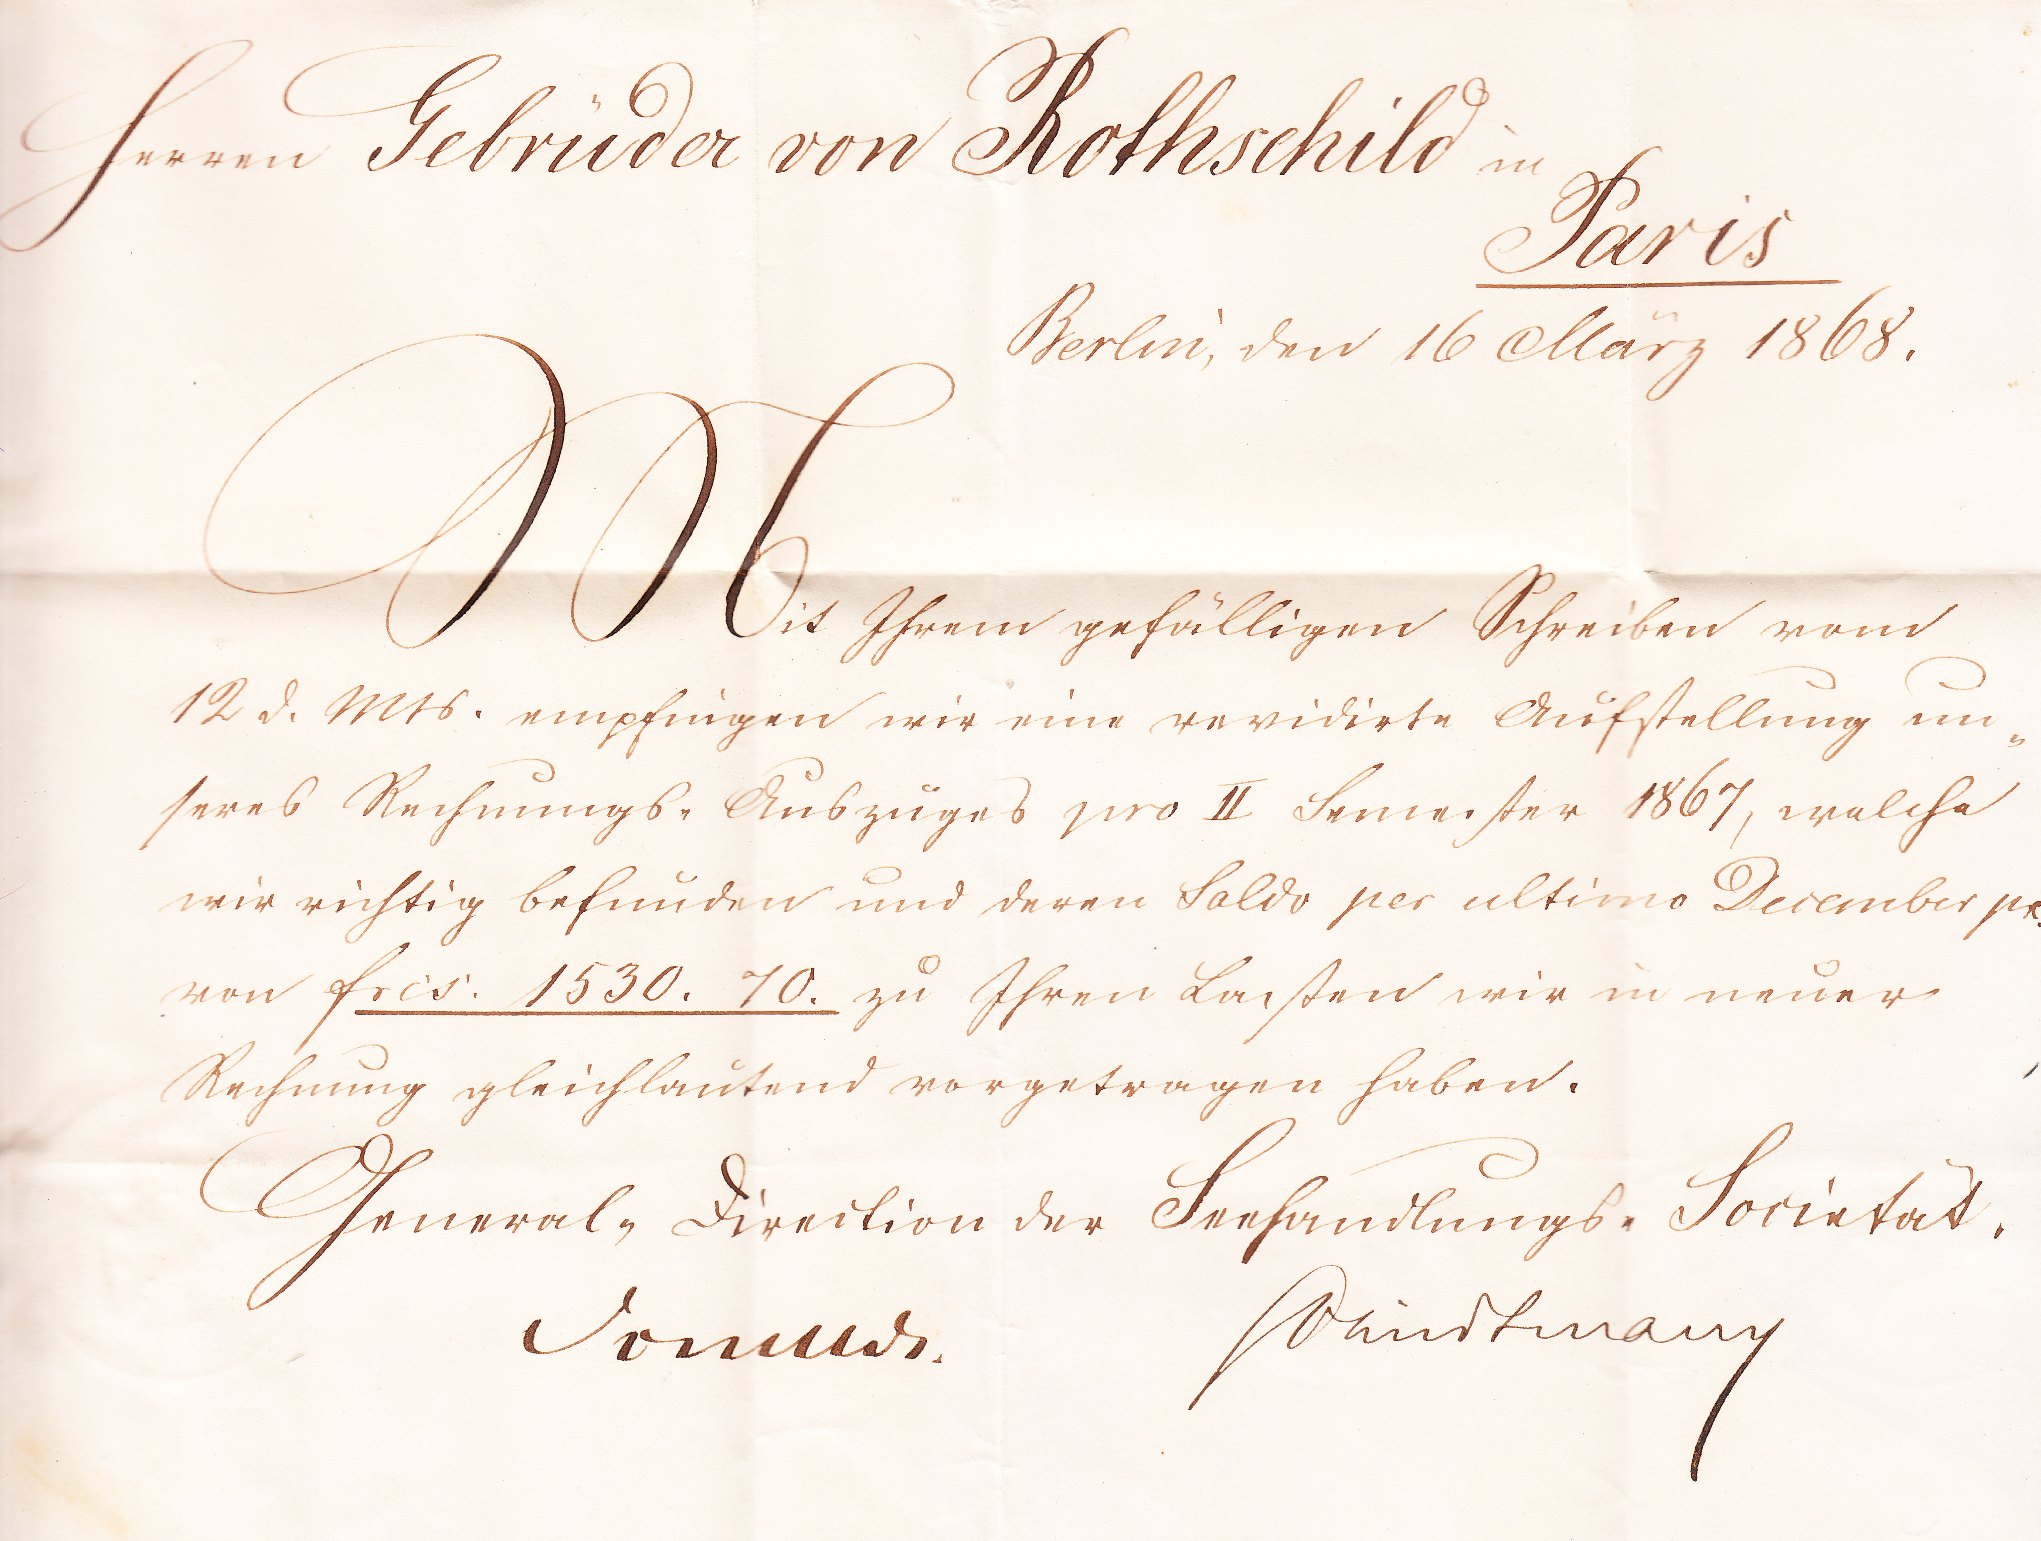 Herren Gebrüder von Rothschild in
Paris
Berlin, den 16 März 1868.
Mit Ihrem gefälligen Schreiben vom
12 d. Mts. empfingen wir eine revidirte Aufstellung un„
seres Rechnungs-Auszuges pro II Semester 1867, welche
wir richtig befunden und deren Saldo per ultimo December pr.
von frcs. 1530. 70. zu Ihren Lasten wir in neuer
Rechnung gleichlautend vorgetragen haben.
General-Direction der Seehandlungs-Societät.